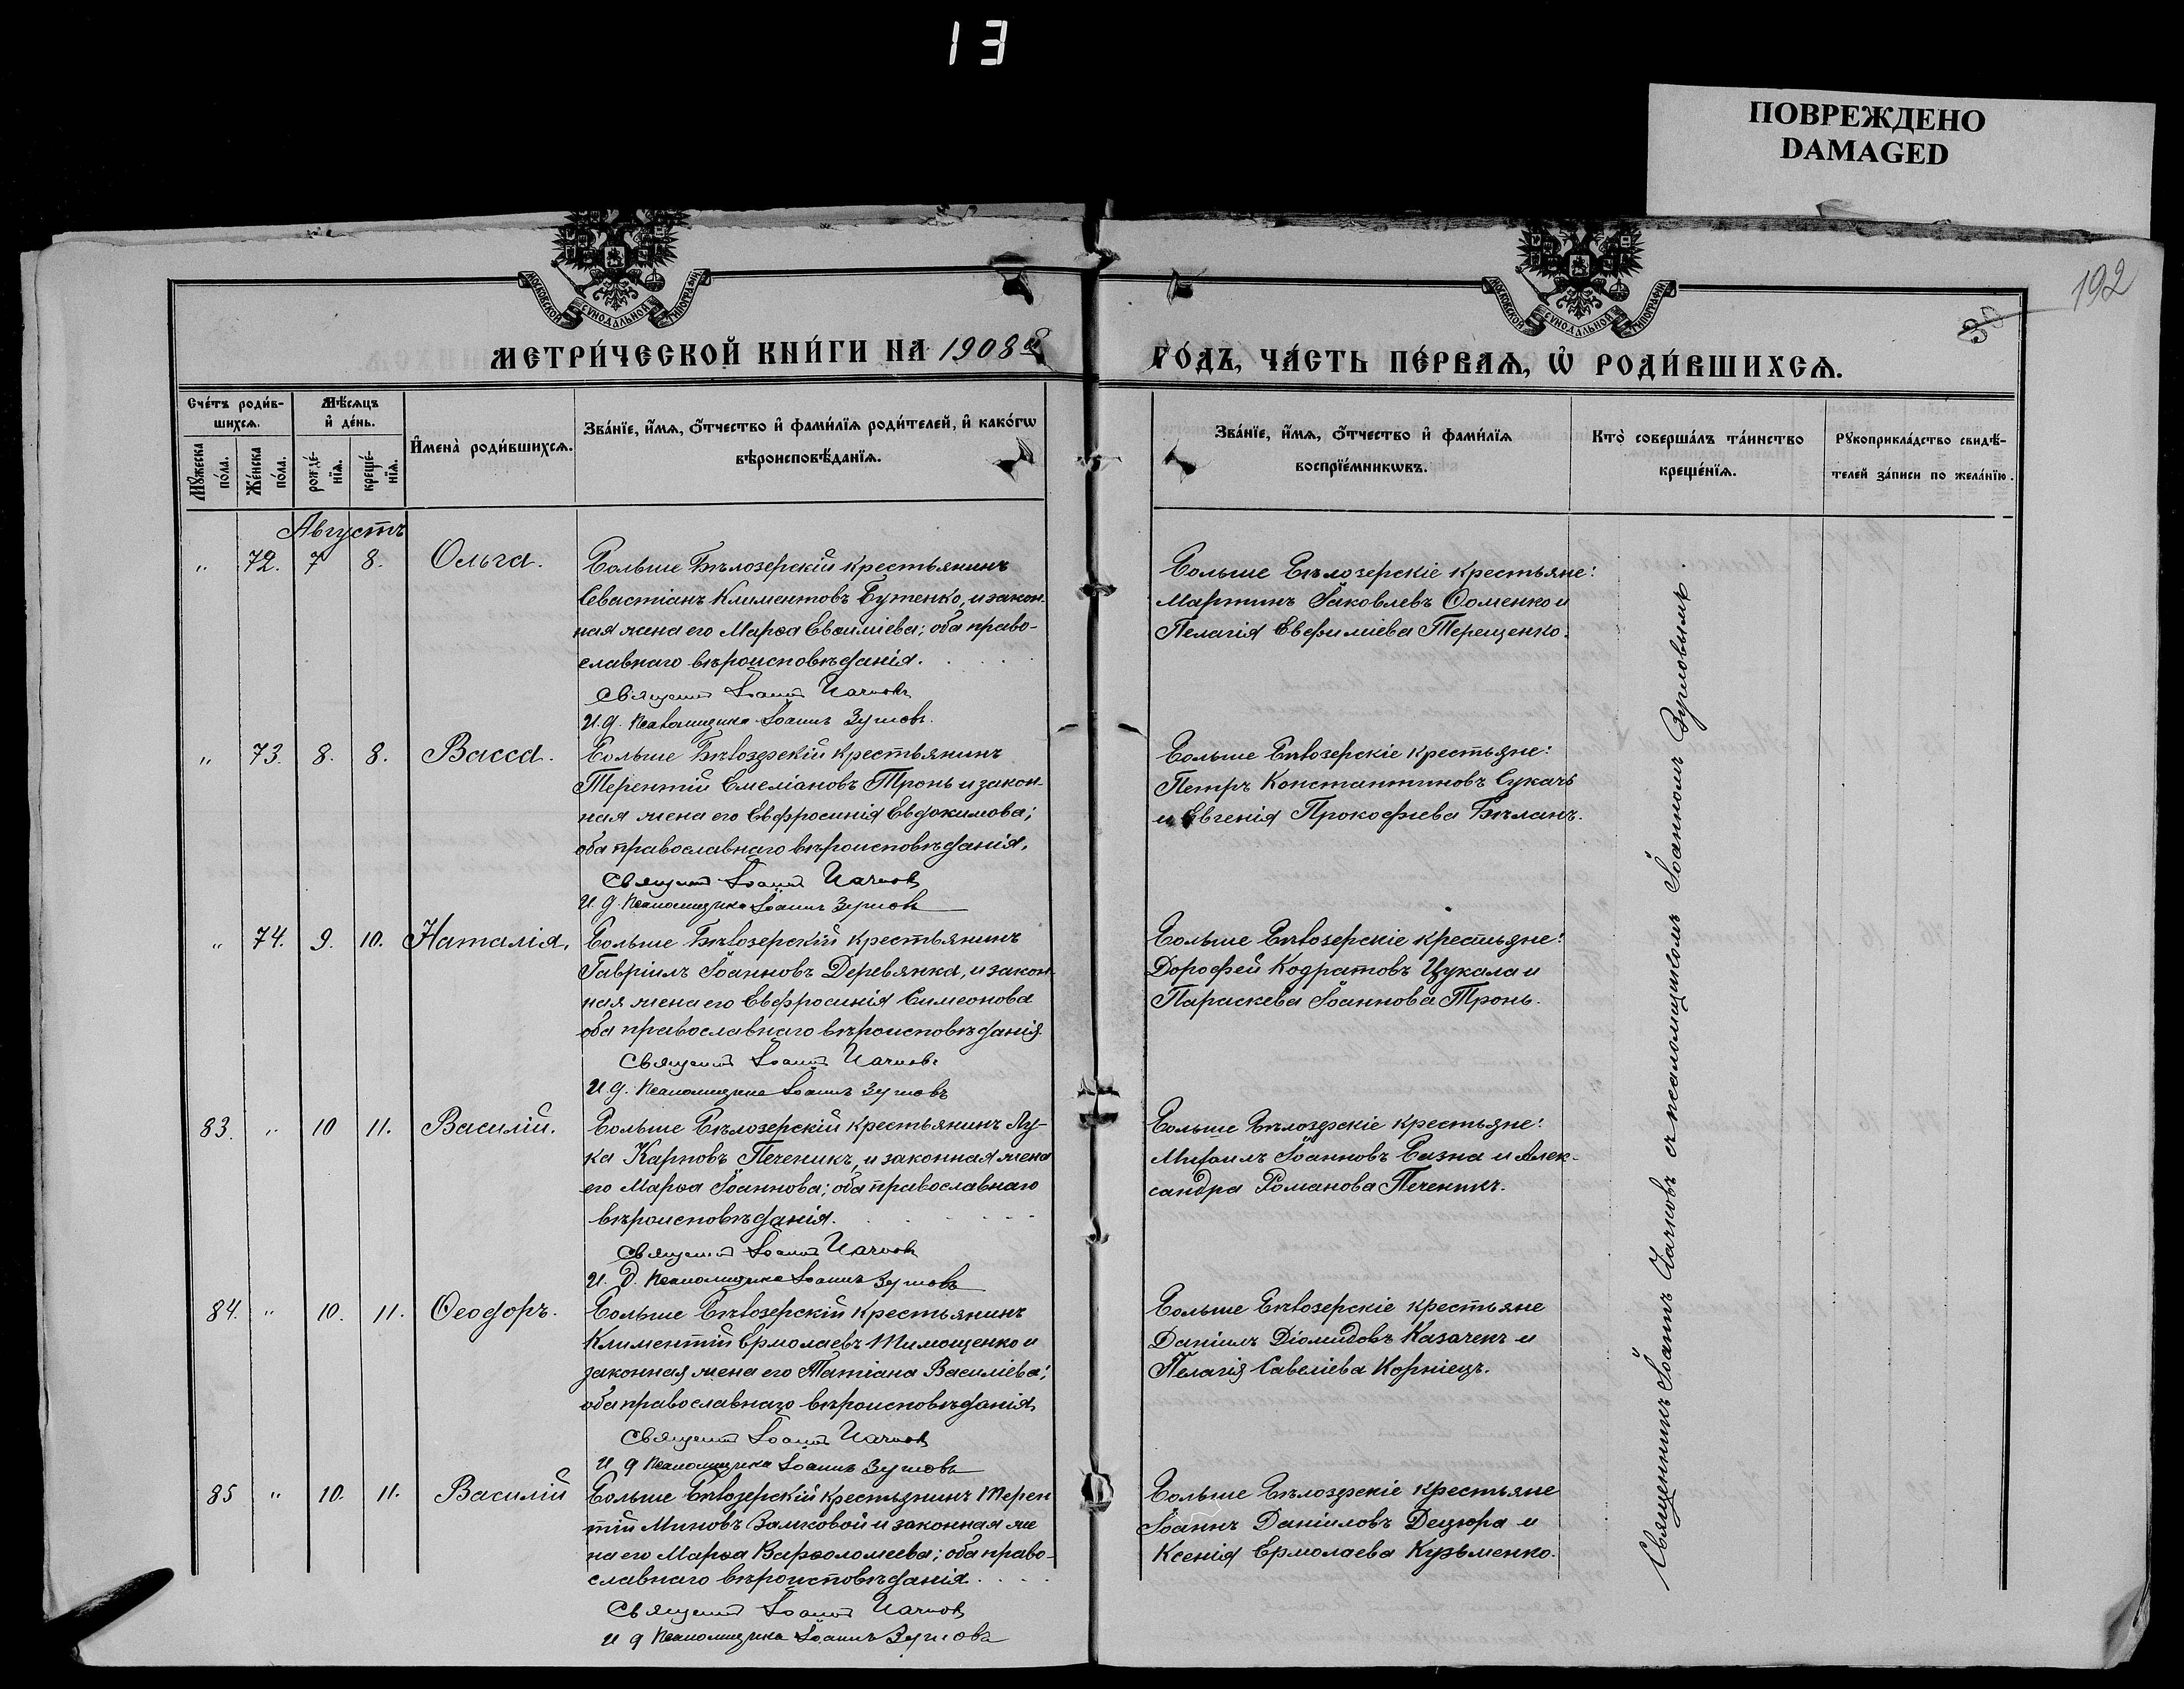 13
ПОВРЕЖДЕНО
DAMAGED
192
30
МОСКОВСКОЙ СѴНОДАЛЬНОЙ ТИПОГРАФІИ
МОСКОВСКОЙ СѴНОДАЛЬНОЙ ТИПОГРАФІИ
МЕТРИ́ЧЕСКОЙ КНИ́ГИ НА 1908й
ГО́ДЪ, ЧА́СТЬ ПЕ́РВАѦ, Ѡ҆ РОДИ́ВШИХСѦ.
Сче́тъ роди́в-
шихсѧ.
Мꙋ́жеска по́ла.
Же́нска по́ла.
Мѣ́сѧцъ
и҆ де́нь.
рожде́-нїѧ.
креще́-нїѧ.
И҆мена̀ роди́вшихсѧ.
Зва́нїе, и҆́мѧ, ѻ҆́тчество и҆ фами́лїѧ роди́телей, и҆ како́гѡ
вѣроисповѣ́данїѧ.
Зва́нїе, и҆́мѧ, ѻ҆́тчество и҆ фами́лїѧ
воспрїе́мникѡвъ.
Кто̀ соверша́лъ та́инство
креще́нїѧ.
Рꙋкоприкла́дство свидѣ́-
телей за́писи по жела́нїю.
Августъ
" 72. 7 8. Ольга. Больше Бѣлозерскій крестьянинъ
Севастіанъ Климентовъ Бутенко, и закон-
ная жена его Марѳа Евѳиміева; оба право-
славнаго вѣроисповѣданія.
Священ Іоаннъ Чачковъ
И.д. Псаломщика Іоаннъ Зугловъ.
Больше Бѣлозерскіе крестьяне:
Мартинъ Іаковлевъ Ѳоменко и
Пелагія Евфиміева Терещенко.
" 73. 8. 8. Васса. Больше Бѣлозерскій крестьянинъ
Терентій Емеліановъ Тронь и закон-
ная жена его Евфросинія Евдокимова;
оба православнаго вѣроисповѣданія.
Священ Іоаннъ Чачковъ
И.д. Псаломщика Іоаннъ Зугловъ
Больше Бѣлозерскіе крестьяне:
Петръ Константиновъ Сукачъ
и Евгенія Прокофиева Бѣланъ.
" 74. 9. 10. Наталія. Больше Бѣлозерскій крестьянинъ
Гавріилъ Іоанновъ Деревянка, и закон-
ная жена его Евфросинія Симеонова
оба православнаго вѣроисповѣданія.
Священ Іоаннъ Чачковъ
И.д. Псаломщика Іоаннъ Зугловъ
Больше Бѣлозерскіе крестьяне:
Дорофей Кодратовъ Цукала и
Параскева Іоаннова Тронь.
83. " 10 11. Василій. Больше Бѣлозерскій крестьянинъ Лу-
ка Карповъ Печеникъ, и законная жена
его Марѳа Іоаннова; оба православнаго
вѣроисповѣданія.
Священ Іоаннъ Чачковъ
И.д. Псаломщика Іоаннъ Зугловъ
Больше Бѣлозерскіе крестьяне:
Михаилъ Іоанновъ Разна и Алек-
сандра Романова Печеникъ.
84. " 10. 11. Ѳеодоръ. Больше Бѣлозерскій крестьянинъ
Климентій Ермолаевъ Тимощенко и
законная жена его Татіана Василіева;
оба православнаго вѣроисповѣданія.
Священ Іоаннъ Чачковъ
И д Псаломщика Іоаннъ Зугловъ
Больше Бѣлозерскіе крестьяне
Даніилъ Діомидовъ Казаченъ и
Пелагія Савеліева Корніецъ.
85 " 10. 11. Василій Больше Бѣлозерскій крестьянинъ Терен
тій Миновъ Замковой и законная же
на его Марѳа Варѳоломеева; оба право-
славнаго вѣроисповѣданія.
Священ Іоаннъ Чачковъ
И д Псаломщика Іоаннъ Зугловъ
Больше Бѣлозерскіе крестьяне
Іоаннъ Даніиловъ Децюра и
Ксенія Ермолаева Кузьменко.
Священникъ Іоаннъ Чачковъ съ псаломщикомъ Іоанномъ Зугловымъ.